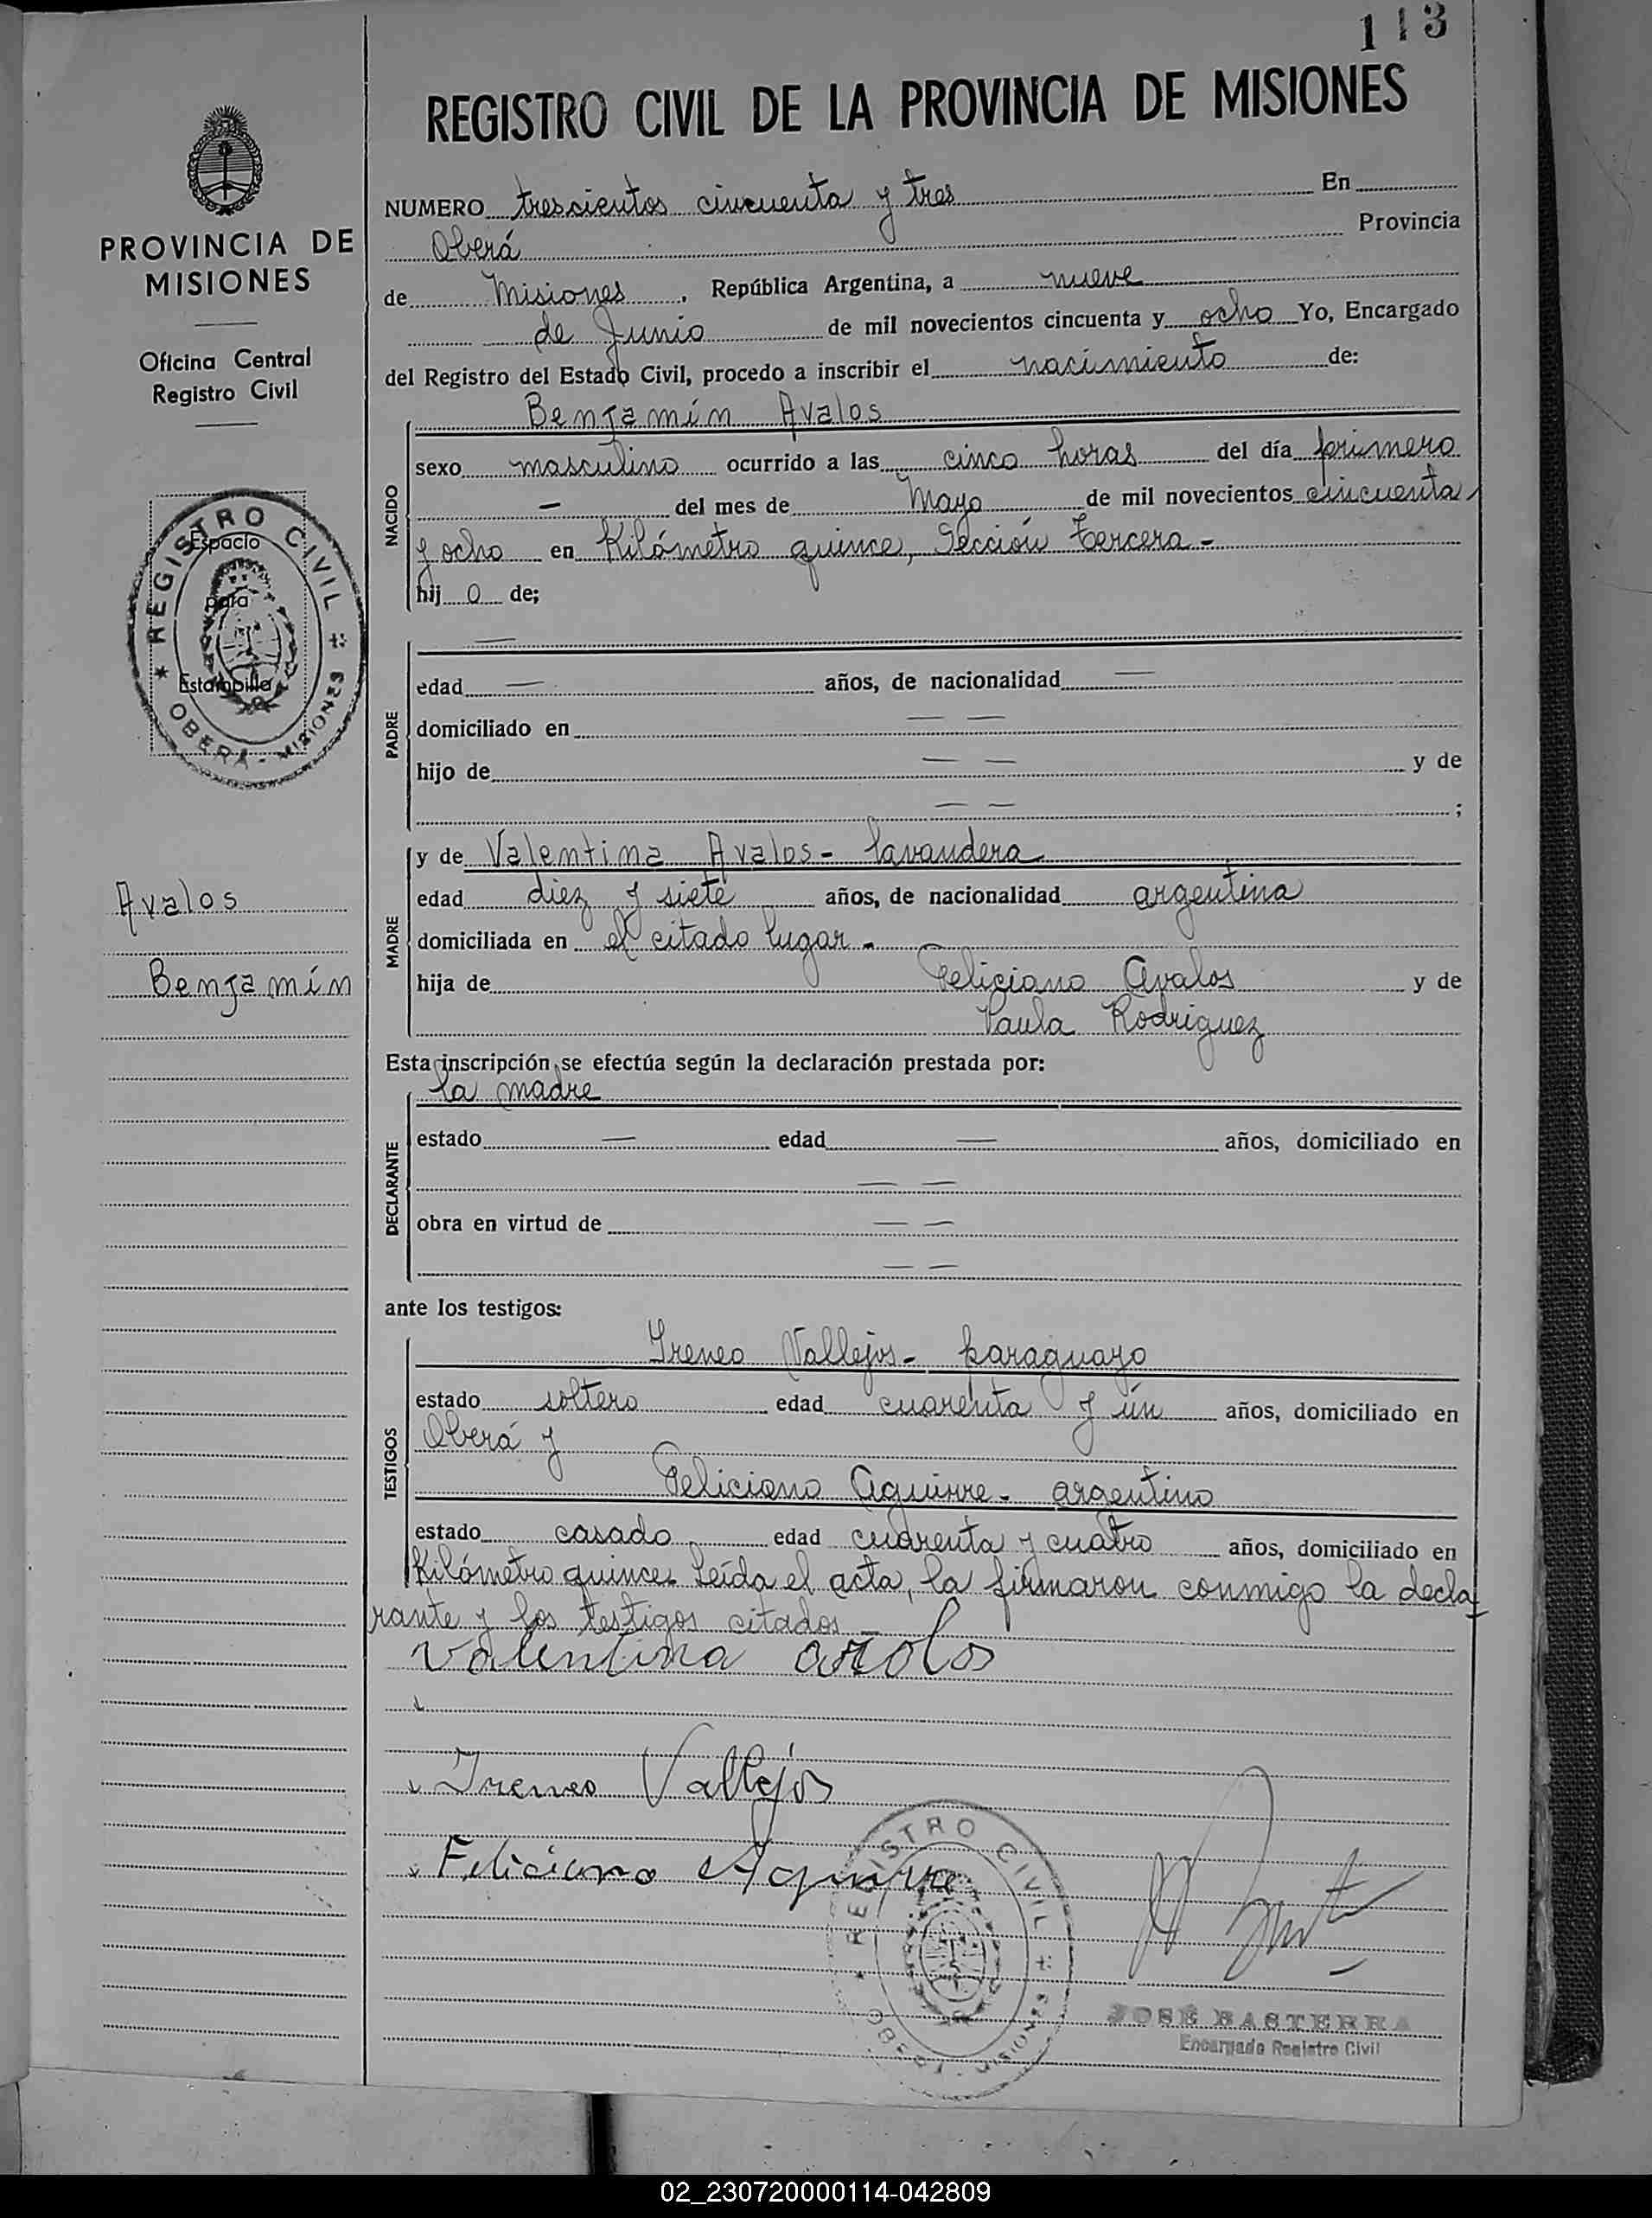 113
REGISTRO CIVIL DE LA PROVINCIA DE MISIONES
PROVINCIA DE
MISIONES
Oficina Central
Registro Civil
REGISTRO CIVIL
OBERÁ - MISIONES
Espacio
para
Estampilla
Avalos
Benjamín
NUMERO trescientos cincuenta y tres En
Oberá Provincia
de Misiones, República Argentina, a nueve
de Junio de mil novecientos cincuenta y ocho Yo, Encargado
del Registro del Estado Civil, procedo a inscribir el nacimiento de:
Benjamín Avalos
NACIDO
sexo masculino ocurrido a las cinco horas del día primero
— del mes de Mayo de mil novecientos cincuenta
y ocho en Kilómetro quince, Sección Tercera -
hij o de;
PADRE
—
edad — años, de nacionalidad —
domiciliado en — —
hijo de — — y de
— — ;
MADRE
y de Valentina Avalos - lavandera
edad diez y siete años, de nacionalidad argentina
domiciliada en el citado lugar -
hija de Feliciano Avalos y de
Paula Rodriguez
Esta inscripción se efectúa según la declaración prestada por:
la madre
DECLARANTE
estado — edad — años, domiciliado en
— —
obra en virtud de — —
— —
ante los testigos:
TESTIGOS
Ireneo Vallejos - paraguayo
estado soltero edad cuarenta y ún años, domiciliado en
Oberá y
Feliciano Aguirre - argentino
estado casado edad cuarenta y cuatro años, domiciliado en
Kilómetro quince. Leída el acta, la firmaron conmigo la decla
rante y los testigos citados -
Valentina
Ireneo Vallejos
Feliciano Aguirre
REGISTRO CIVIL
OBERÁ - MISIONES
JOSÉ BASTERRA
Encargado Registro Civil
02_230720000114-042809